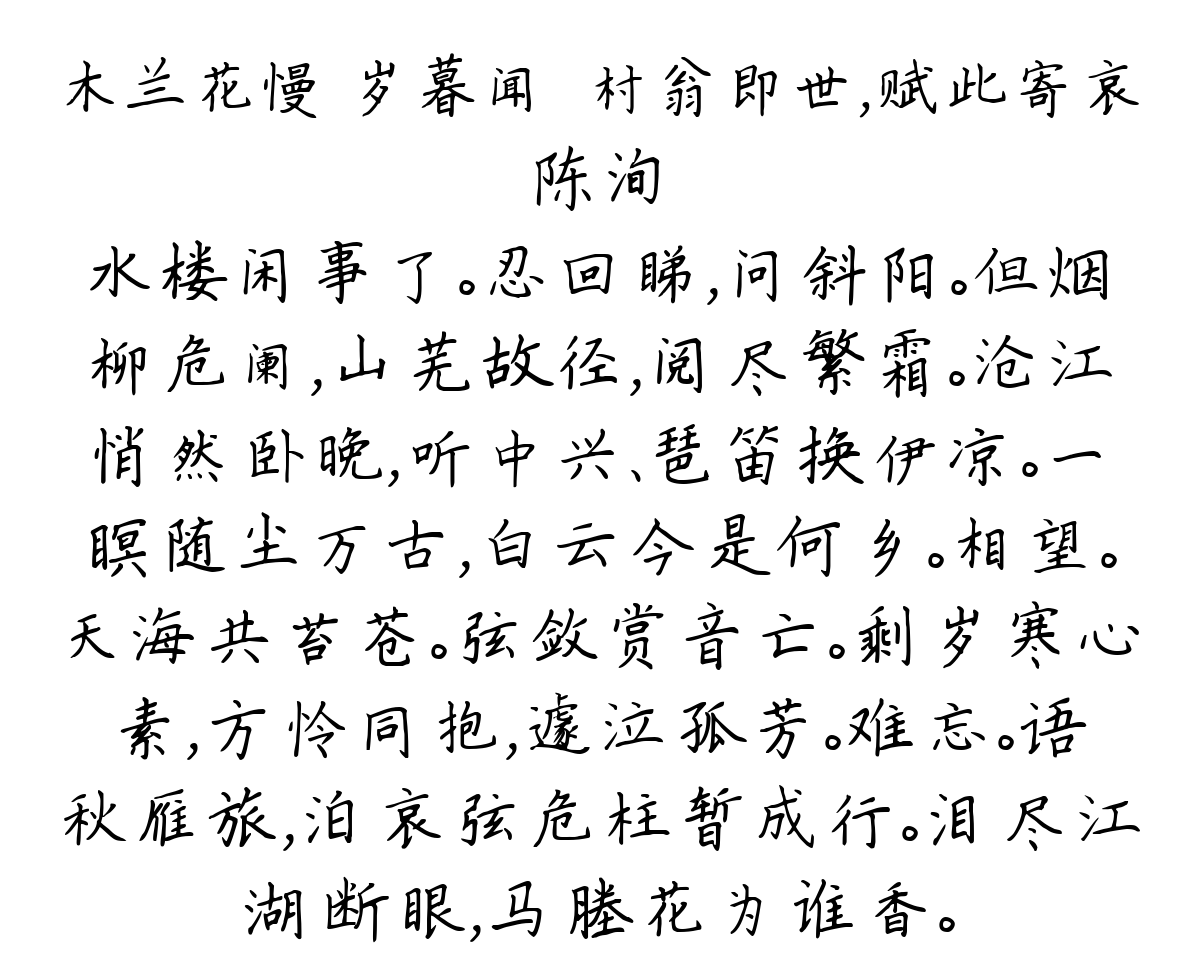 木兰花慢 岁暮闻 村翁即世,赋此寄哀
陈洵
水楼闲事了。忍回睇,问斜阳。但烟
柳危阑,山芜故径,阅尽繁霜。沧江
悄然卧晚,听中兴、琶笛换伊凉。一
瞑随尘万古,白云今是何乡。相望。
天海共苔苍。弦敛赏音亡。剩岁寒心
素,方怜同抱,遽泣孤芳。难忘。语
秋雁旅,泊哀弦危柱暂成行。泪尽江
湖断眼,马塍花为谁香。